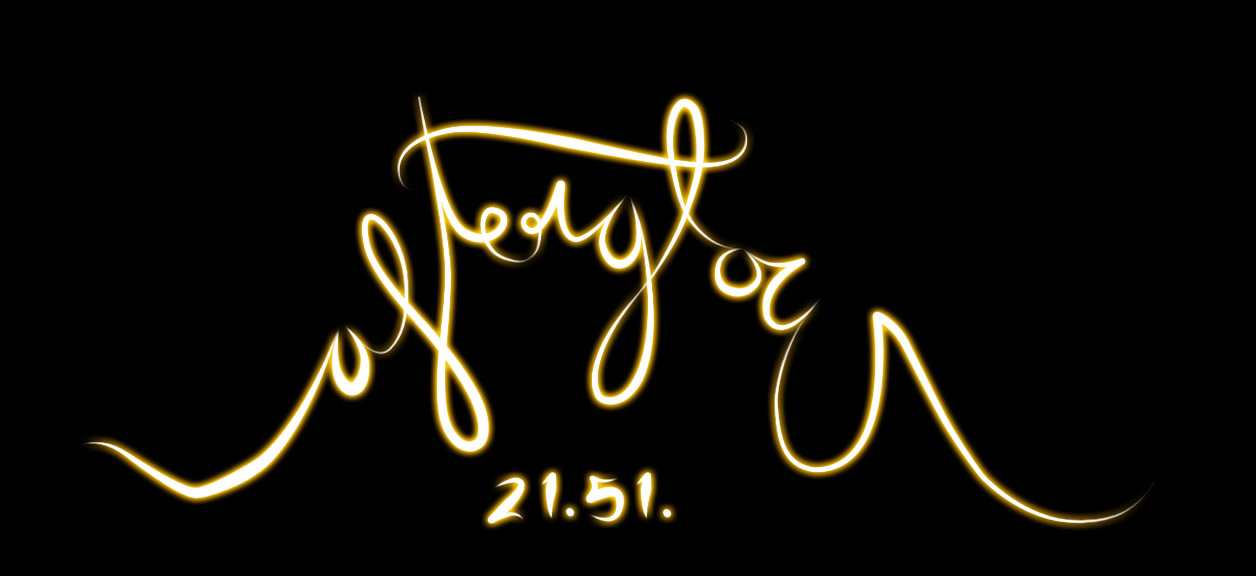 afterglow
21.51.